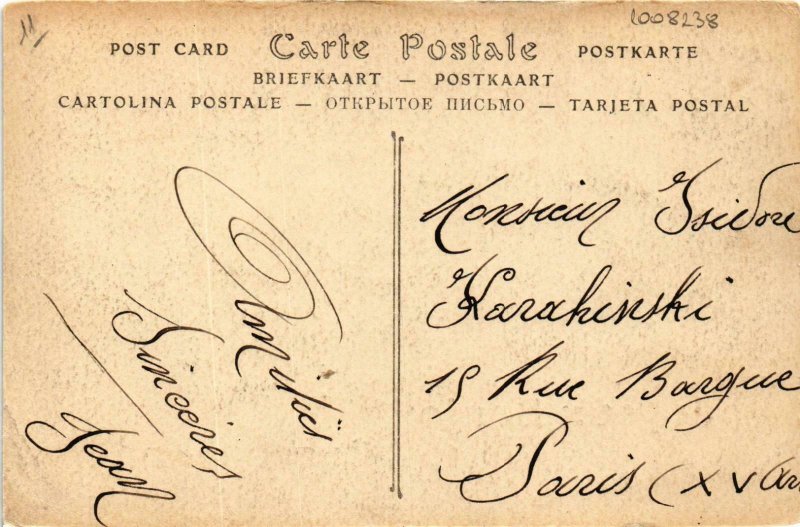 11
1008238
POST CARD Carte Postale POSTKARTE
BRIEFKAART — POSTKAART
CARTOLINA POSTALE — ОТКРЫТОЕ ПИСЬМО — TARJETA POSTAL
Amitiés
Sincères
Jean
Monsieur Isidore
Karahinski
15 Rue Bargue
Paris (XV Ar